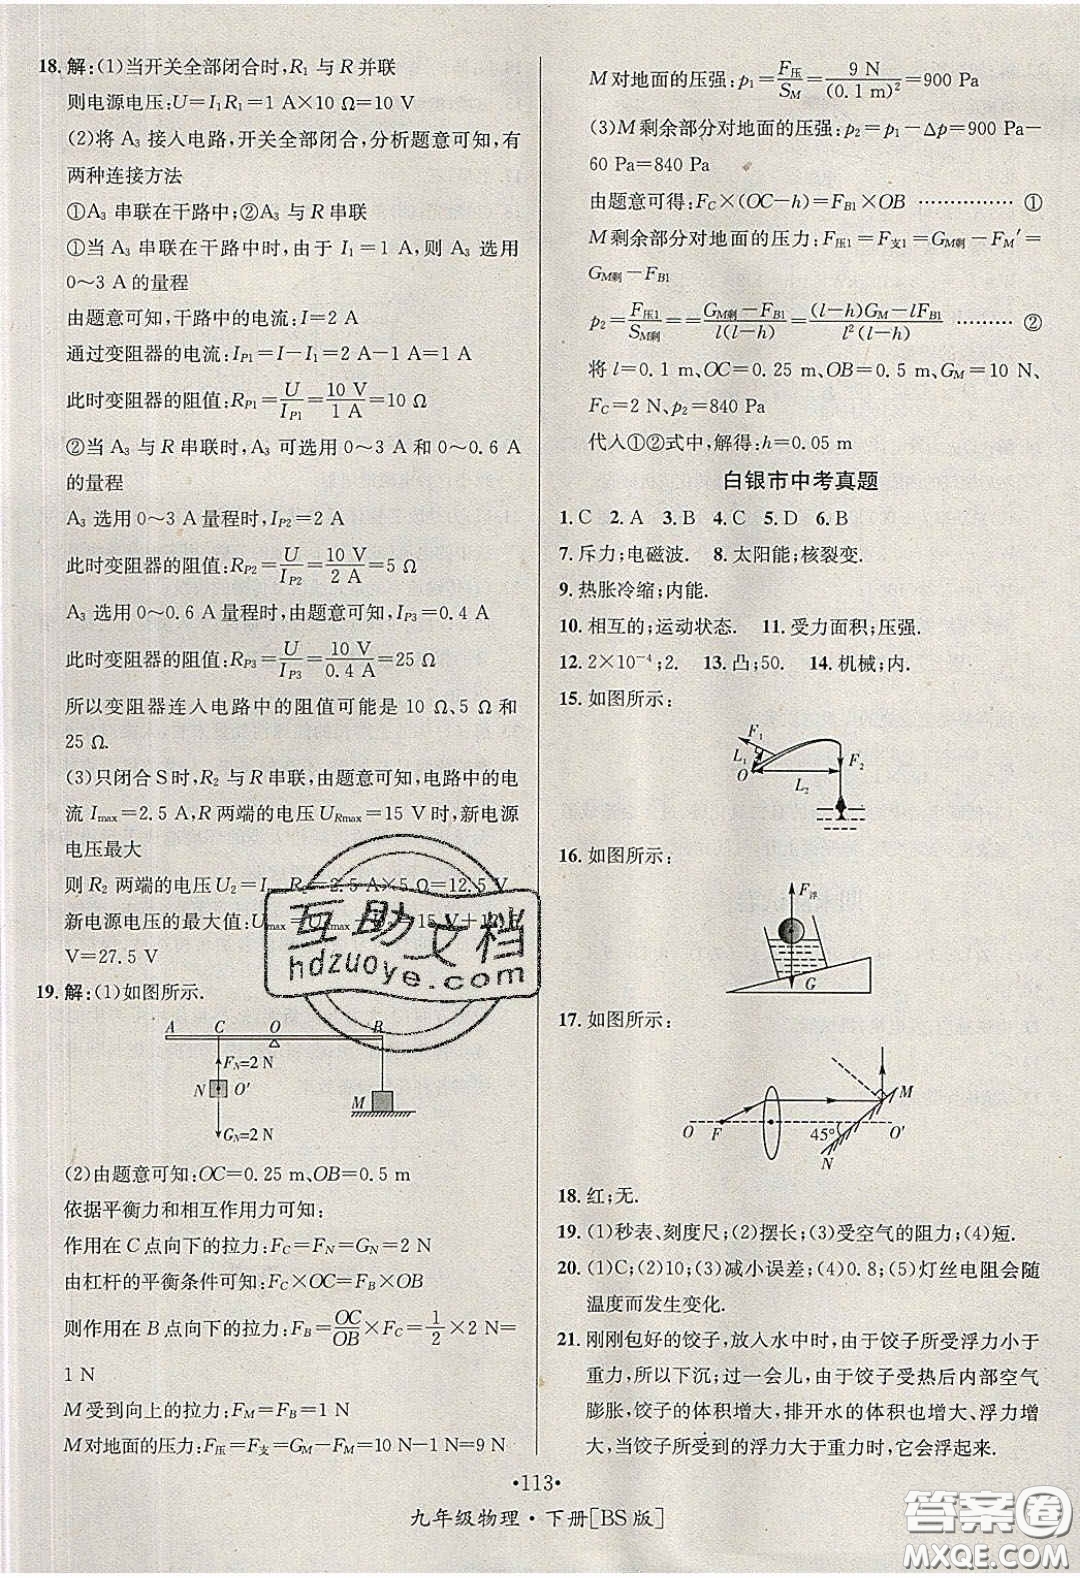 18. 解:(1)当开关全部闭合时,R₁ 与 R 并联
则电源电压:U=I₁R₁=1 A×10 Ω=10 V
(2)将 A₃ 接入电路,开关全部闭合,分析题意可知,有
两种连接方法
①A₃ 串联在干路中;②A₃ 与 R 串联
①当 A₃ 串联在干路中时,由于 I₁=1 A,则 A₃ 选用
0～3 A 的量程
由题意可知,干路中的电流:I=2 A
通过变阻器的电流:I_P1=I－I₁=2 A－1 A=1 A
此时变阻器的阻值:R_P1=U/I_P1=10 V/1 A=10 Ω
②当 A₃ 与 R 串联时,A₃ 可选用 0～3 A 和 0～0.6 A
的量程
A₃ 选用 0～3 A 量程时,I_P2=2 A
此时变阻器的阻值:R_P2=U/I_P2=10 V/2 A=5 Ω
A₃ 选用 0～0.6 A 量程时,由题意可知,I_P3=0.4 A
此时变阻器的阻值:R_P3=U/I_P3=10 V/0.4 A=25 Ω
所以变阻器连入电路中的阻值可能是 10 Ω、5 Ω 和
25 Ω.
(3)只闭合 S 时,R₂ 与 R 串联,由题意可知,电路中的电
流 I_max=2.5 A,R 两端的电压 U_Rmax=15 V 时,新电源
电压最大
则 R₂ 两端的电压 U₂=I R₂=2.5 A×5 Ω=12.5 V
新电源电压的最大值:U_max=U_max 15 V+
V=27.5 V
19. 解:(1)如图所示.
A C O B
F_N=2 N
N O′
M
G_N=2 N
(2)由题意可知:OC=0.25 m,OB=0.5 m
依据平衡力和相互作用力可知:
作用在 C 点向下的拉力:F_C=F_N=G_N=2 N
由杠杆的平衡条件可知:F_C×OC=F_B×OB
则作用在 B 点向下的拉力:F_B=OC/OB×F_C=1/2×2 N=
1 N
M 受到向上的拉力:F_M=F_B=1 N
M 对地面的压力:F_压=F_支=G_M－F_M=10 N－1 N=9 N
M 对地面的压强:p₁=F_压/S_M=9 N/(0.1 m)²=900 Pa
(3)M 剩余部分对地面的压强:p₂=p₁－Δp=900 Pa－
60 Pa=840 Pa
由题意可得:F_C×(OC－h)=F_B1×OB …………… ①
M 剩余部分对地面的压力:F_压1=F_支1=G_M剩－F_M′=
G_M剩－F_B1
p₂=F_压1/S_M剩==(G_M剩－F_B1)/l(l－h)=((l－h)G_M－lF_B1)/l²(l－h) ……… ②
将 l=0.1 m、OC=0.25 m、OB=0.5 m、G_M=10 N、
F_C=2 N、p₂=840 Pa
代入①②式中,解得:h=0.05 m
白银市中考真题
1. C 2. A 3. B 4. C 5. D 6. B
7. 斥力;电磁波. 8. 太阳能;核裂变.
9. 热胀冷缩;内能.
10. 相互的;运动状态. 11. 受力面积;压强.
12. 2×10⁻⁴;2. 13. 凸;50. 14. 机械;内.
15. 如图所示:
F₁
L₁ F₂
O L₂
16. 如图所示:
F_浮
G
17. 如图所示:
M
O F 45° O′
N
18. 红;无.
19. (1)秒表、刻度尺;(2)摆长;(3)受空气的阻力;(4)短.
20. (1)C;(2)10;(3)减小误差;(4)0.8;(5)灯丝电阻会随
温度而发生变化.
21. 刚刚包好的饺子,放入水中时,由于饺子所受浮力小于
重力,所以下沉;过一会儿,由于饺子受热后内部空气
膨胀,饺子的体积增大,排开水的体积也增大、浮力增
大,当饺子所受到的浮力大于重力时,它会浮起来.
互助文档
hdzuoye.com
·113·
九年级物理·下册[BS 版]
答案圈
MXQE.COM